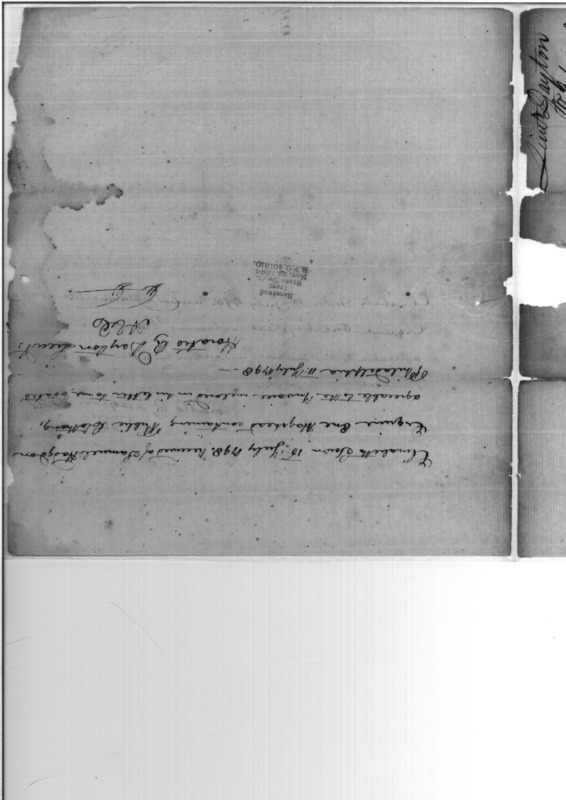 Elizabeth Town 15th July 1798. Received of Samuel Hodgdon
Esquire One Hogshead containing Public Cloathing,
agreeable to the Invoice inclosed in his letter to me, dated
Philadelphia 11th July 1798 —
Horatio G Dayton Lieut:
Received
from
State Dep.,
Nov. 23, 1894.
M.P.O. 401810.
Lieut Dayton